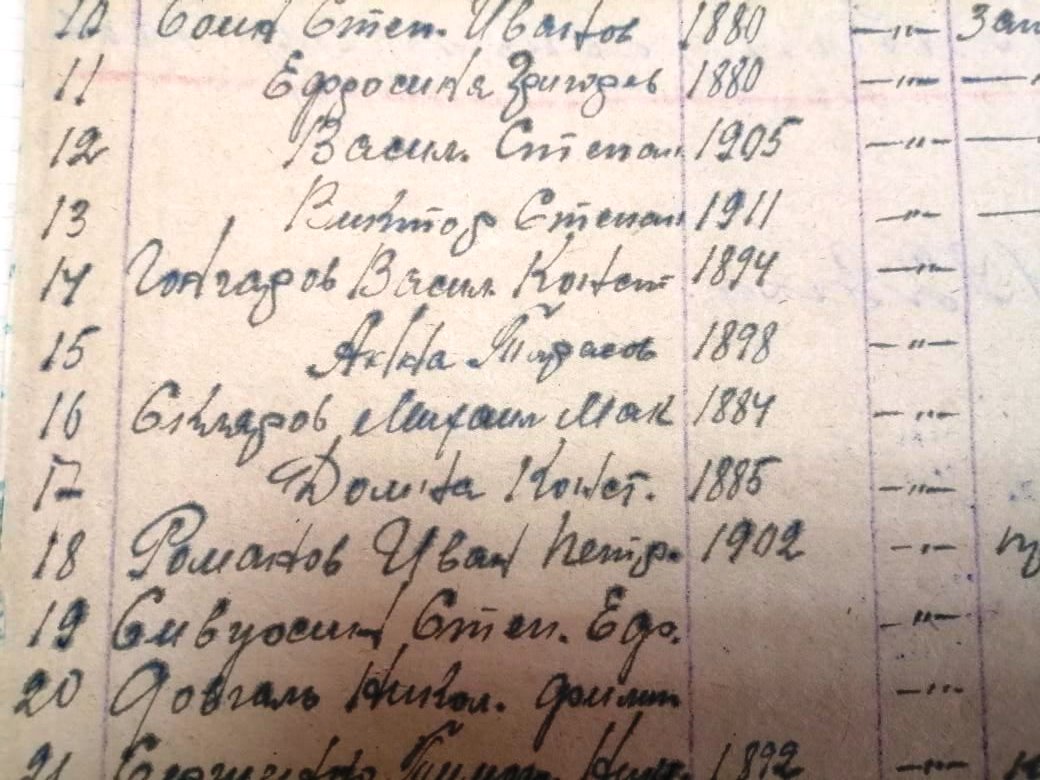 10 Соин Степ. Иванов 1880 —"—
11 Ефросиня Григорьев 1880 —"— —
12 Васил. Степан. 1905 —"— —
13 Виктор Степан 1911 —"— —
14 Гончаров Васил. Конст 1894 —"—
15 Анна Тарасов 1898 —"—
16 Скляров Михаил Мак 1884 —"—
17 Домна Конст. 1885 —"—
18 Романов Иван Петр. 1902 —"—
19 Степ. Еф. —"—
20 Довгаль Никол. Филип —"—
21 1892 —"—